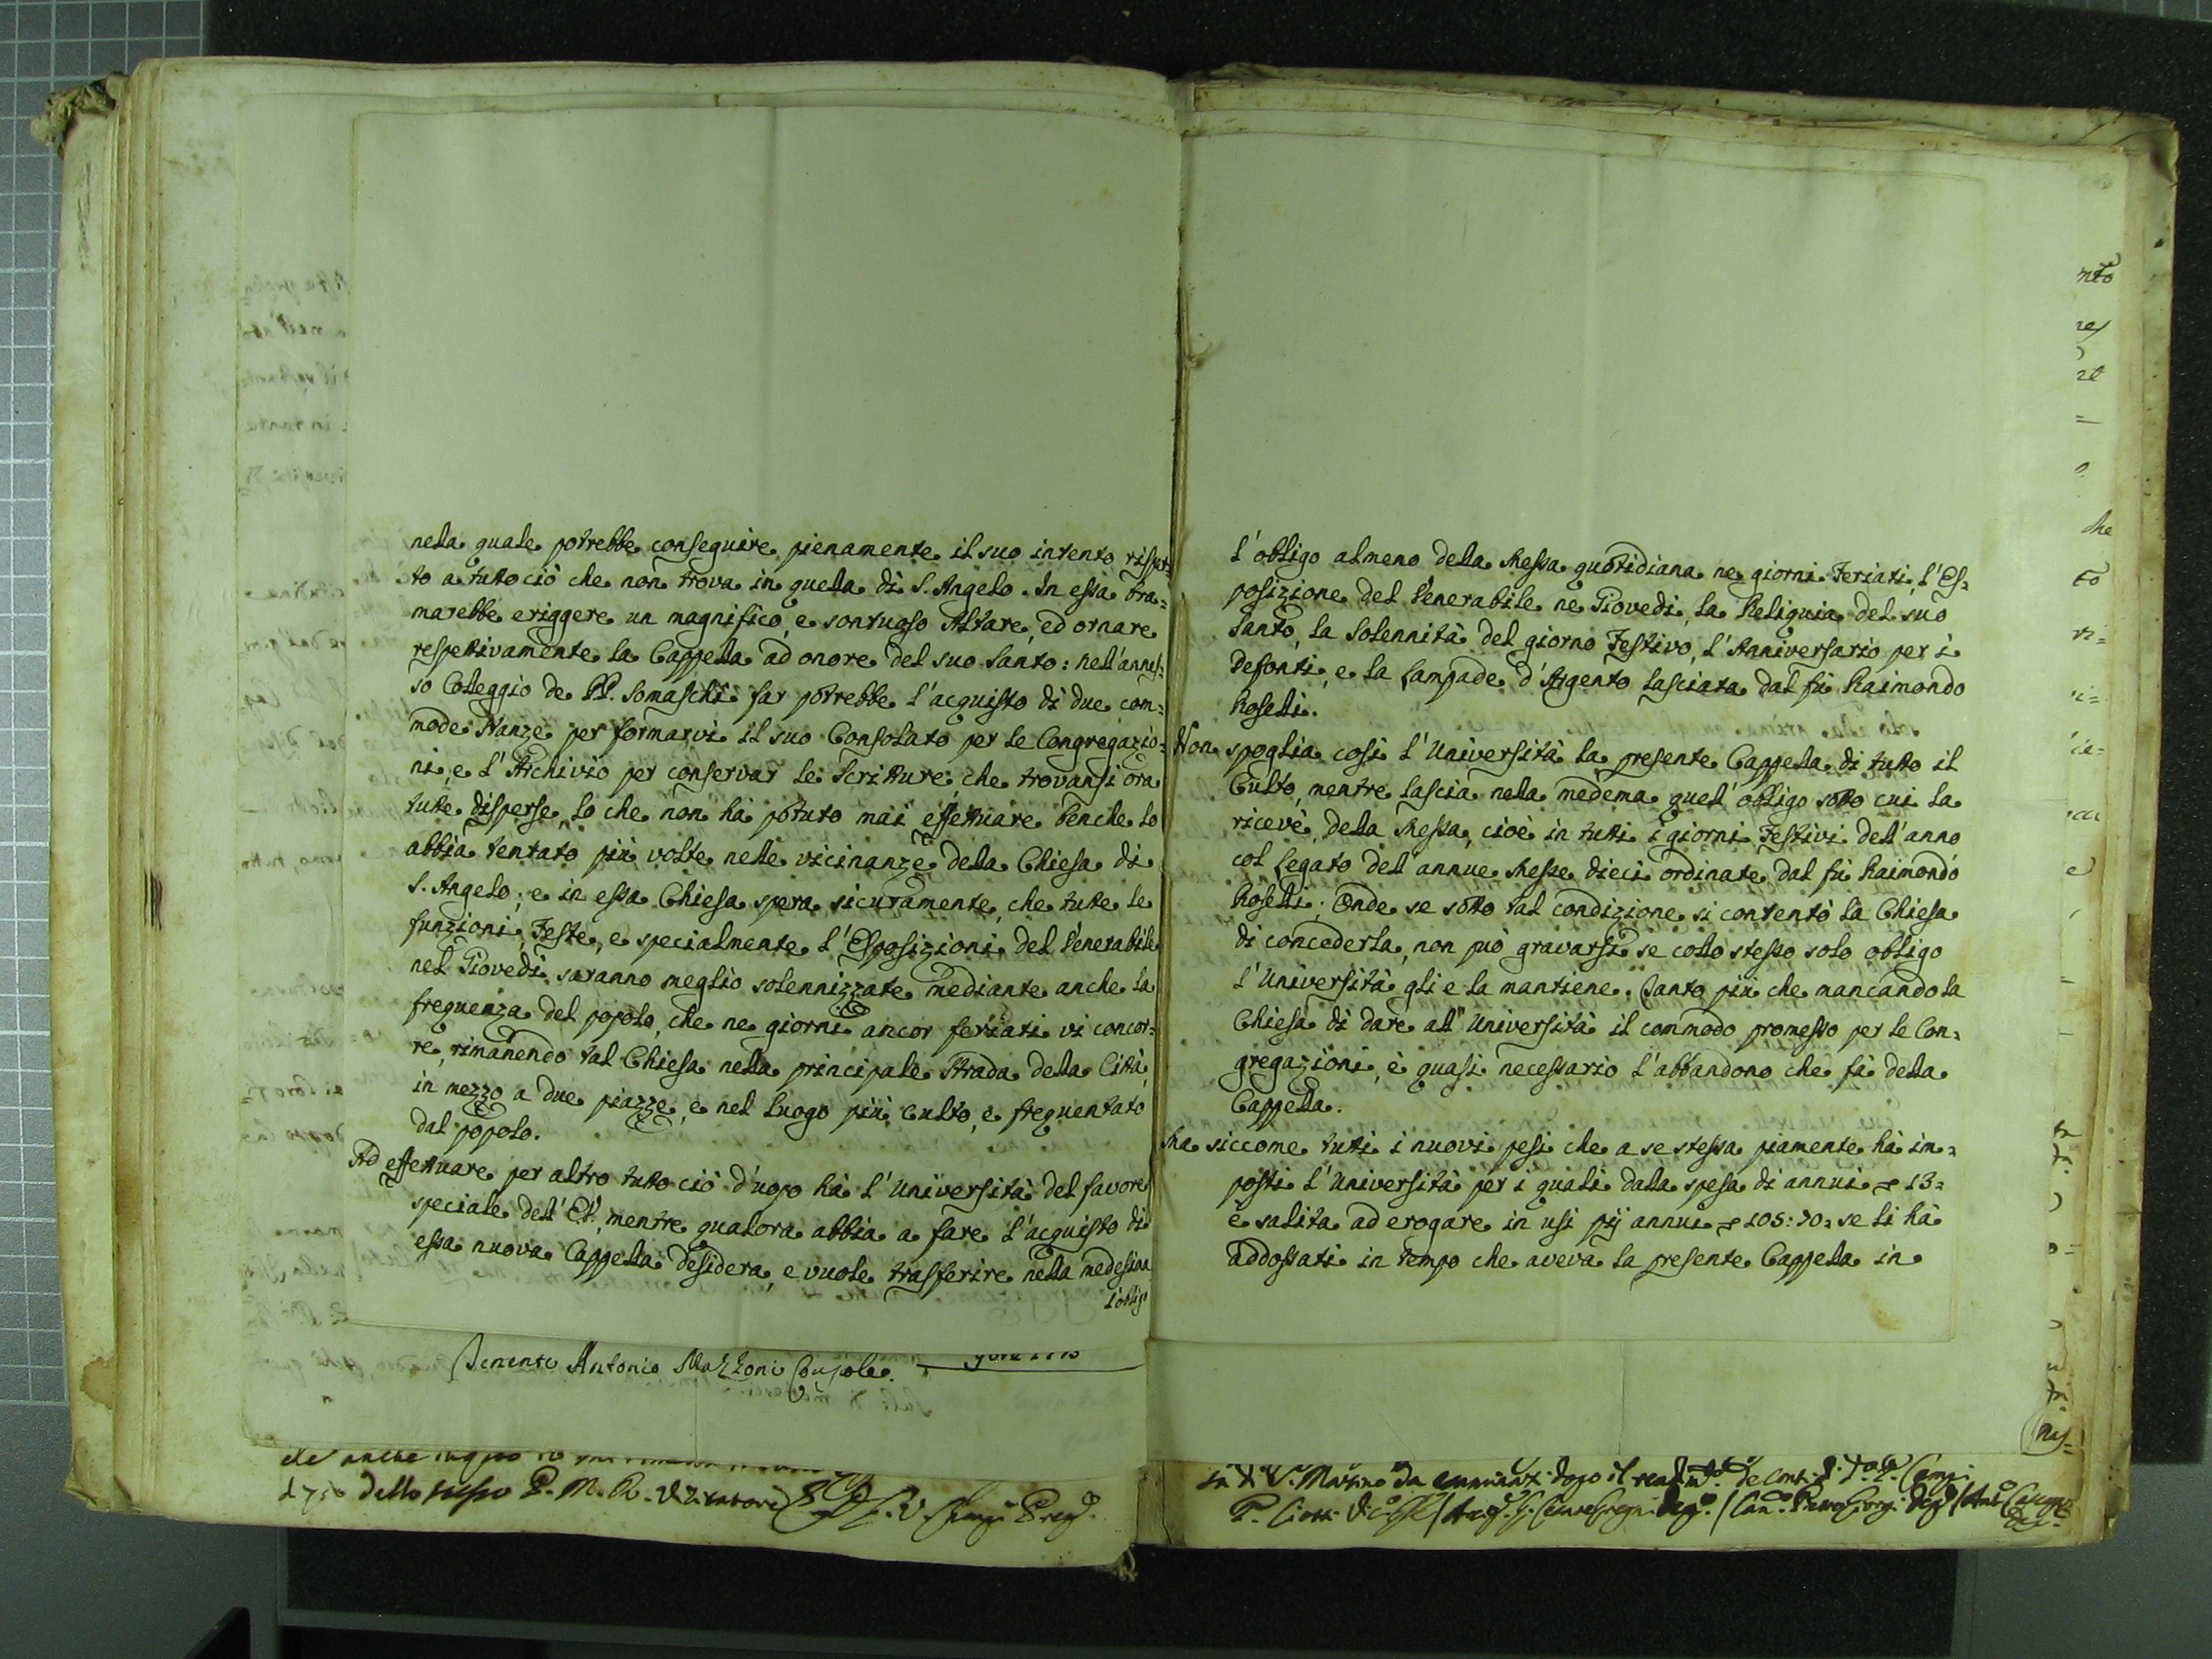 nella quale potrebbe conseguire pienamente il suo intento rispet=
to a tutto ciò che non trova in quella di S. Angelo. In essa bra=
marebbe eriggere un magnifico, e sontuoso Altare, ed ornare
respettivamente la Cappella ad onore del suo Santo: nell'annes=
so Colleggio de PP. Somaschi far potrebbe l'acquisto di due com=
mode stanze per formarvi il suo Consolato per le Congregazio=
ni, e l'Archivio per conservar le Scritture, che trovansi ora
tutte disperse, lo che non hà potuto mai effettuare benche lo
abbia tentato più volte nelle vicinanze della Chiesa di
S. Angelo; e in essa Chiesa spera sicuramente, che tutte le
funzioni, Feste, e specialmente l'Esposizioni del Venerabile
nel Giovedì saranno meglio solennizzate mediante anche la
frequenza del popolo, che ne giorni ancor feriati vi concor=
re, rimanendo tal Chiesa nella principale Strada della Città,
in mezzo a due piazze, e nel luogo più culto, e frequentato
dal popolo.
Ad effettuare per altro tutto ciò d'uopo hà l'Università del favore
speciale dell' mentre qualora abbia a fare l'acquisto di
essa nuova Cappella desidera, e vuole trasferire nella medesima
l'obligo
Antonio Mazzoni Console.
dello stesso P. M. R.
l'obligo almeno della Messa quotidiana ne giorni Feriati, l'Es=
posizione del Venerabile ne Giovedì, la Reliquia del suo
Santo, la Solennità del giorno Festivo, l'Anniversario per i
Defonti, e la Lampade d'Argento lasciata dal fù Raimondo
Roselli.
Non spoglia così l'Università la presente Cappella di tutto il
Culto, mentre lascia nella medema quell'obligo sotto cui la
ricevè della Messa, cioè in tutti i giorni Festivi dell'anno
col Legato dell'annue Messe dieci ordinate dal fù Raimondo
Roselli; Onde se sotto tal condizione si contentò la Chiesa
di concederla, non può gravarsi se collo stesso solo obligo
l'Università gli e la mantiene. Tanto più che mancando la
Chiesa di dare all'Università il commodo promesso per le Con=
gregazioni, è quasi necessario l'abbandono che fà della
Cappella.
Ma siccome tutti i nuovi pesi che a se stessa piamente hà im=
posti l'Università per i quali dalla spesa di annui 13=
è salita ad erogare in usi pij annui 105:70= se li hà
addossati in tempo che aveva la presente Cappella in